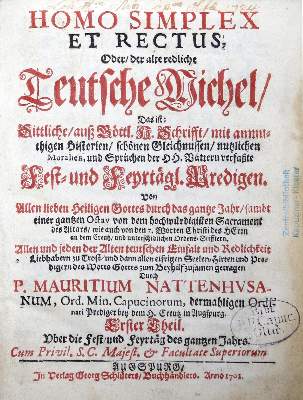 HOMO SIMPLEX
ET RECTUS,
Oder/ der alte redliche
Teutsche Michel/
Das ist:
Sittliche/ auß Göttl. H. Schrifft/ mit anmü-
thigen Historien/ schönen Gleichnussen/ nutzlichen
Moralien, und Sprüchen der HH. Vättern verfaßte
Fest- und Feyrtägl. Predigen.
Von
Allen lieben Heiligen Gottes durch das gantze Jahr/ sambt
einer gantzen Octav von dem hochwürdigisten Sacrament
des Altars/ wie auch von den 7. Worten Christi des HErrn
an dem Creutz/ und unterschidlichen Ordens-Stifftern,
Allen und jeden der Alten teutschen Einfalt und Redlichkeit
Liebhabern zu Trost/ und dann allen eifrigen Seelen-Hirten und Pre-
digern des Worts Gottes zum Beyhülff zusamen getragen
Durch
P. MAURITIUM NATTENHUSA-
NUM, Ord. Min. Capucinorum, dermahligen Ordi-
nari Prediger bey dem H. Creutz in Augspurg.
Erster Theil.
Uber die Fest und Feyrtäg des gantzen Jahrs.
Cum Privil. S. C. Majest. & Facultate Superiorum
AUGSPURG/
In Verlag Georg Schlüters/ Buchhändlers. Anno 1701.